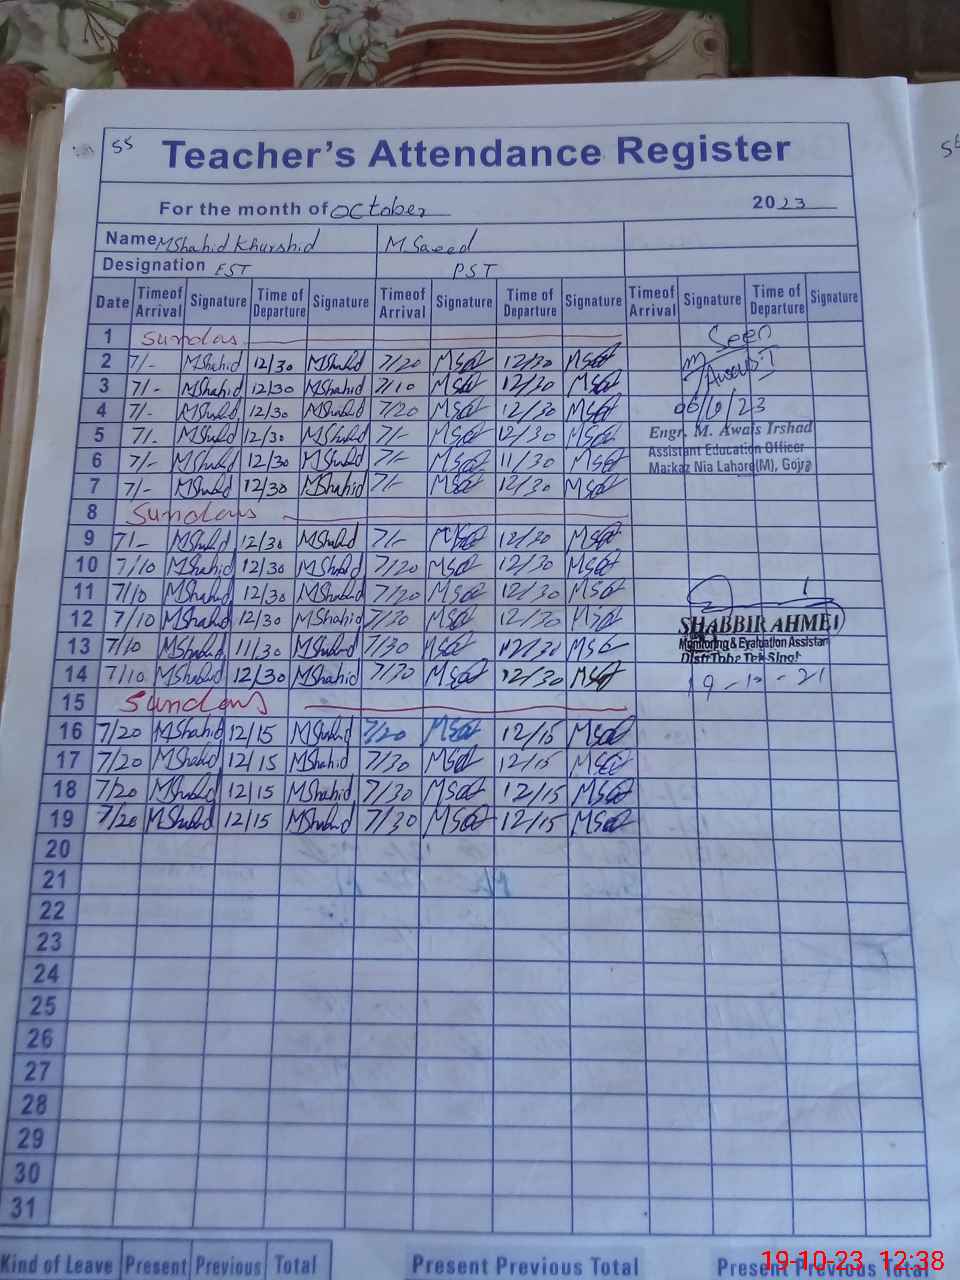 55
Teacher's Attendance Register
For the month of October 2023
Name MShahid Khurshid M Saeed
Designation EST PST
Date Time of Arrival Signature Time of Departure Signature Time of Arrival Signature Time of Departure Signature Time of Arrival Signature Time of Departure Signature
1 Sundas Seen
2 7/- MShahid 12/30 MShahid 7/20 MSae 12/30 MSae
3 7/- MShahid 12/30 MShahid 7/10 MSae 12/30 MSae
4 7/- MShahid 12/30 MShahid 7/20 MSae 12/30 MSae 06/10/23
5 7/- MShahid 12/30 MShahid 7/- MSae 12/30 MSae Engr. M. Awais Irshad
Assistant Education Officer
6 7/- MShahid 12/30 MShahid 7/- MSae 11/30 MSae Markaz Nia Lahore(M), Gojra
7 7/- MShahid 12/30 MShahid 7/- MSae 12/30 MSae
8 Sundas
9 7/- MShahid 12/30 MShahid 7/- MSae 12/30 MSae
10 7/10 MShahid 12/30 MShahid 7/20 MSae 12/30 MSae
11 7/10 MShahid 12/30 MShahid 7/20 MSae 12/30 MSae
12 7/10 MShahid 12/30 MShahid 7/30 MSae 12/30 MSae SHABBIR AHMED
13 7/10 MShahid 11/30 MShahid 7/30 MSae 12/30 MSae Monitoring & Evaluation Assistant
14 7/10 MShahid 12/30 MShahid 7/30 MSae 12/30 MSae
15 Sundas
16 7/20 MShahid 12/15 MShahid 7/20 MSae 12/15 MSae
17 7/20 MShahid 12/15 MShahid 7/30 MSae 12/15 MSae
18 7/20 MShahid 12/15 MShahid 7/30 MSae 12/15 MSae
19 7/20 MShahid 12/15 MShahid 7/30 MSae 12/15 MSae
20
21
22
23
24
25
26
27
28
29
30
31
Kind of Leave Present Previous Total Present Previous Total Present Previous Total
19-10-23 12:38